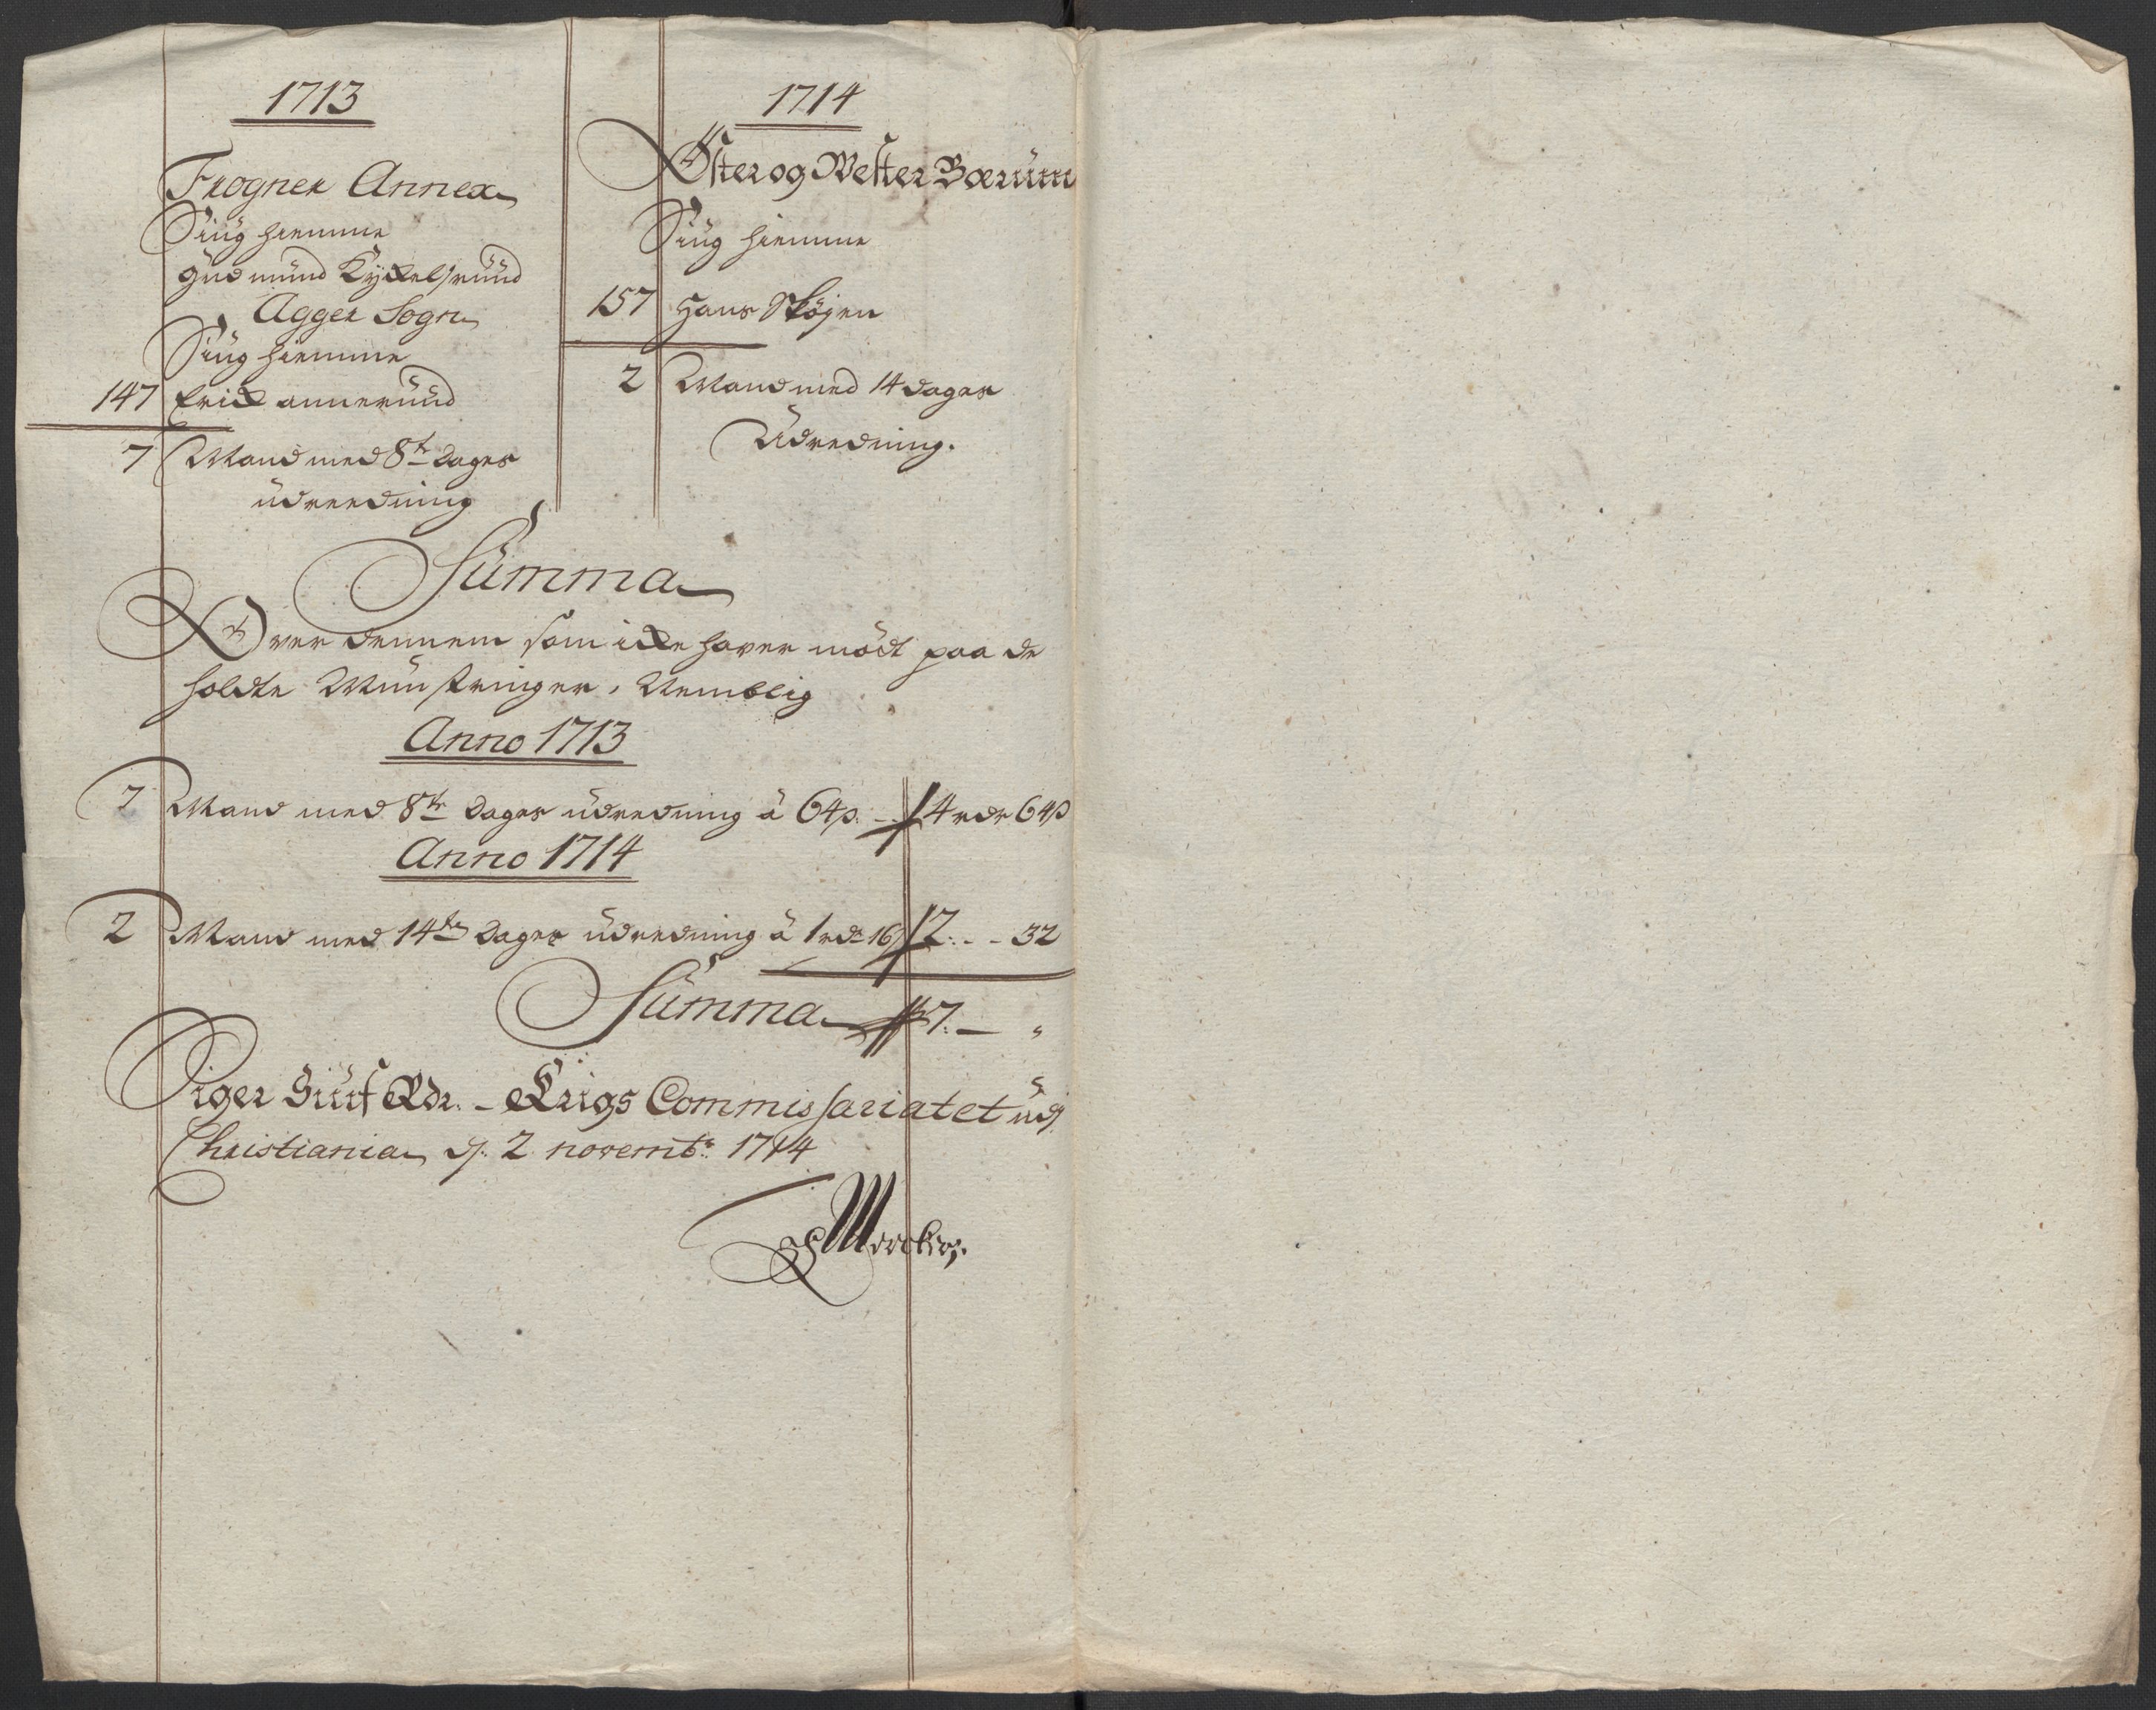 1713
Frogner Annex
Siüg hiemme
Gudmünd Kykelsrüüd
Agger Sogn
Siüg hiemme
147 Erick annerüüd
7 Mand med 8te Dages
üdreedning
1714
Øster og Wester Bærüm
Siüg hiemme
157 Hans Skøyen
2 Mand med 14 dages
Üdredning.
Sümma
Over dennem som icke haver mødt paa de
holdte Münstringer, Nemblig
Anno 1713
7 Mand med 8te Dages üdredning â 64s. - 4 rdr 64s
Anno 1714
2 Mand med 14ten Dages üdredning â 1 rdr 16s 2. - - 32
Sümma 7. — "
Siger Siüf Rdr. - Krigs Commissariatet üdj
Christiania dj. 2 novembr. 1714